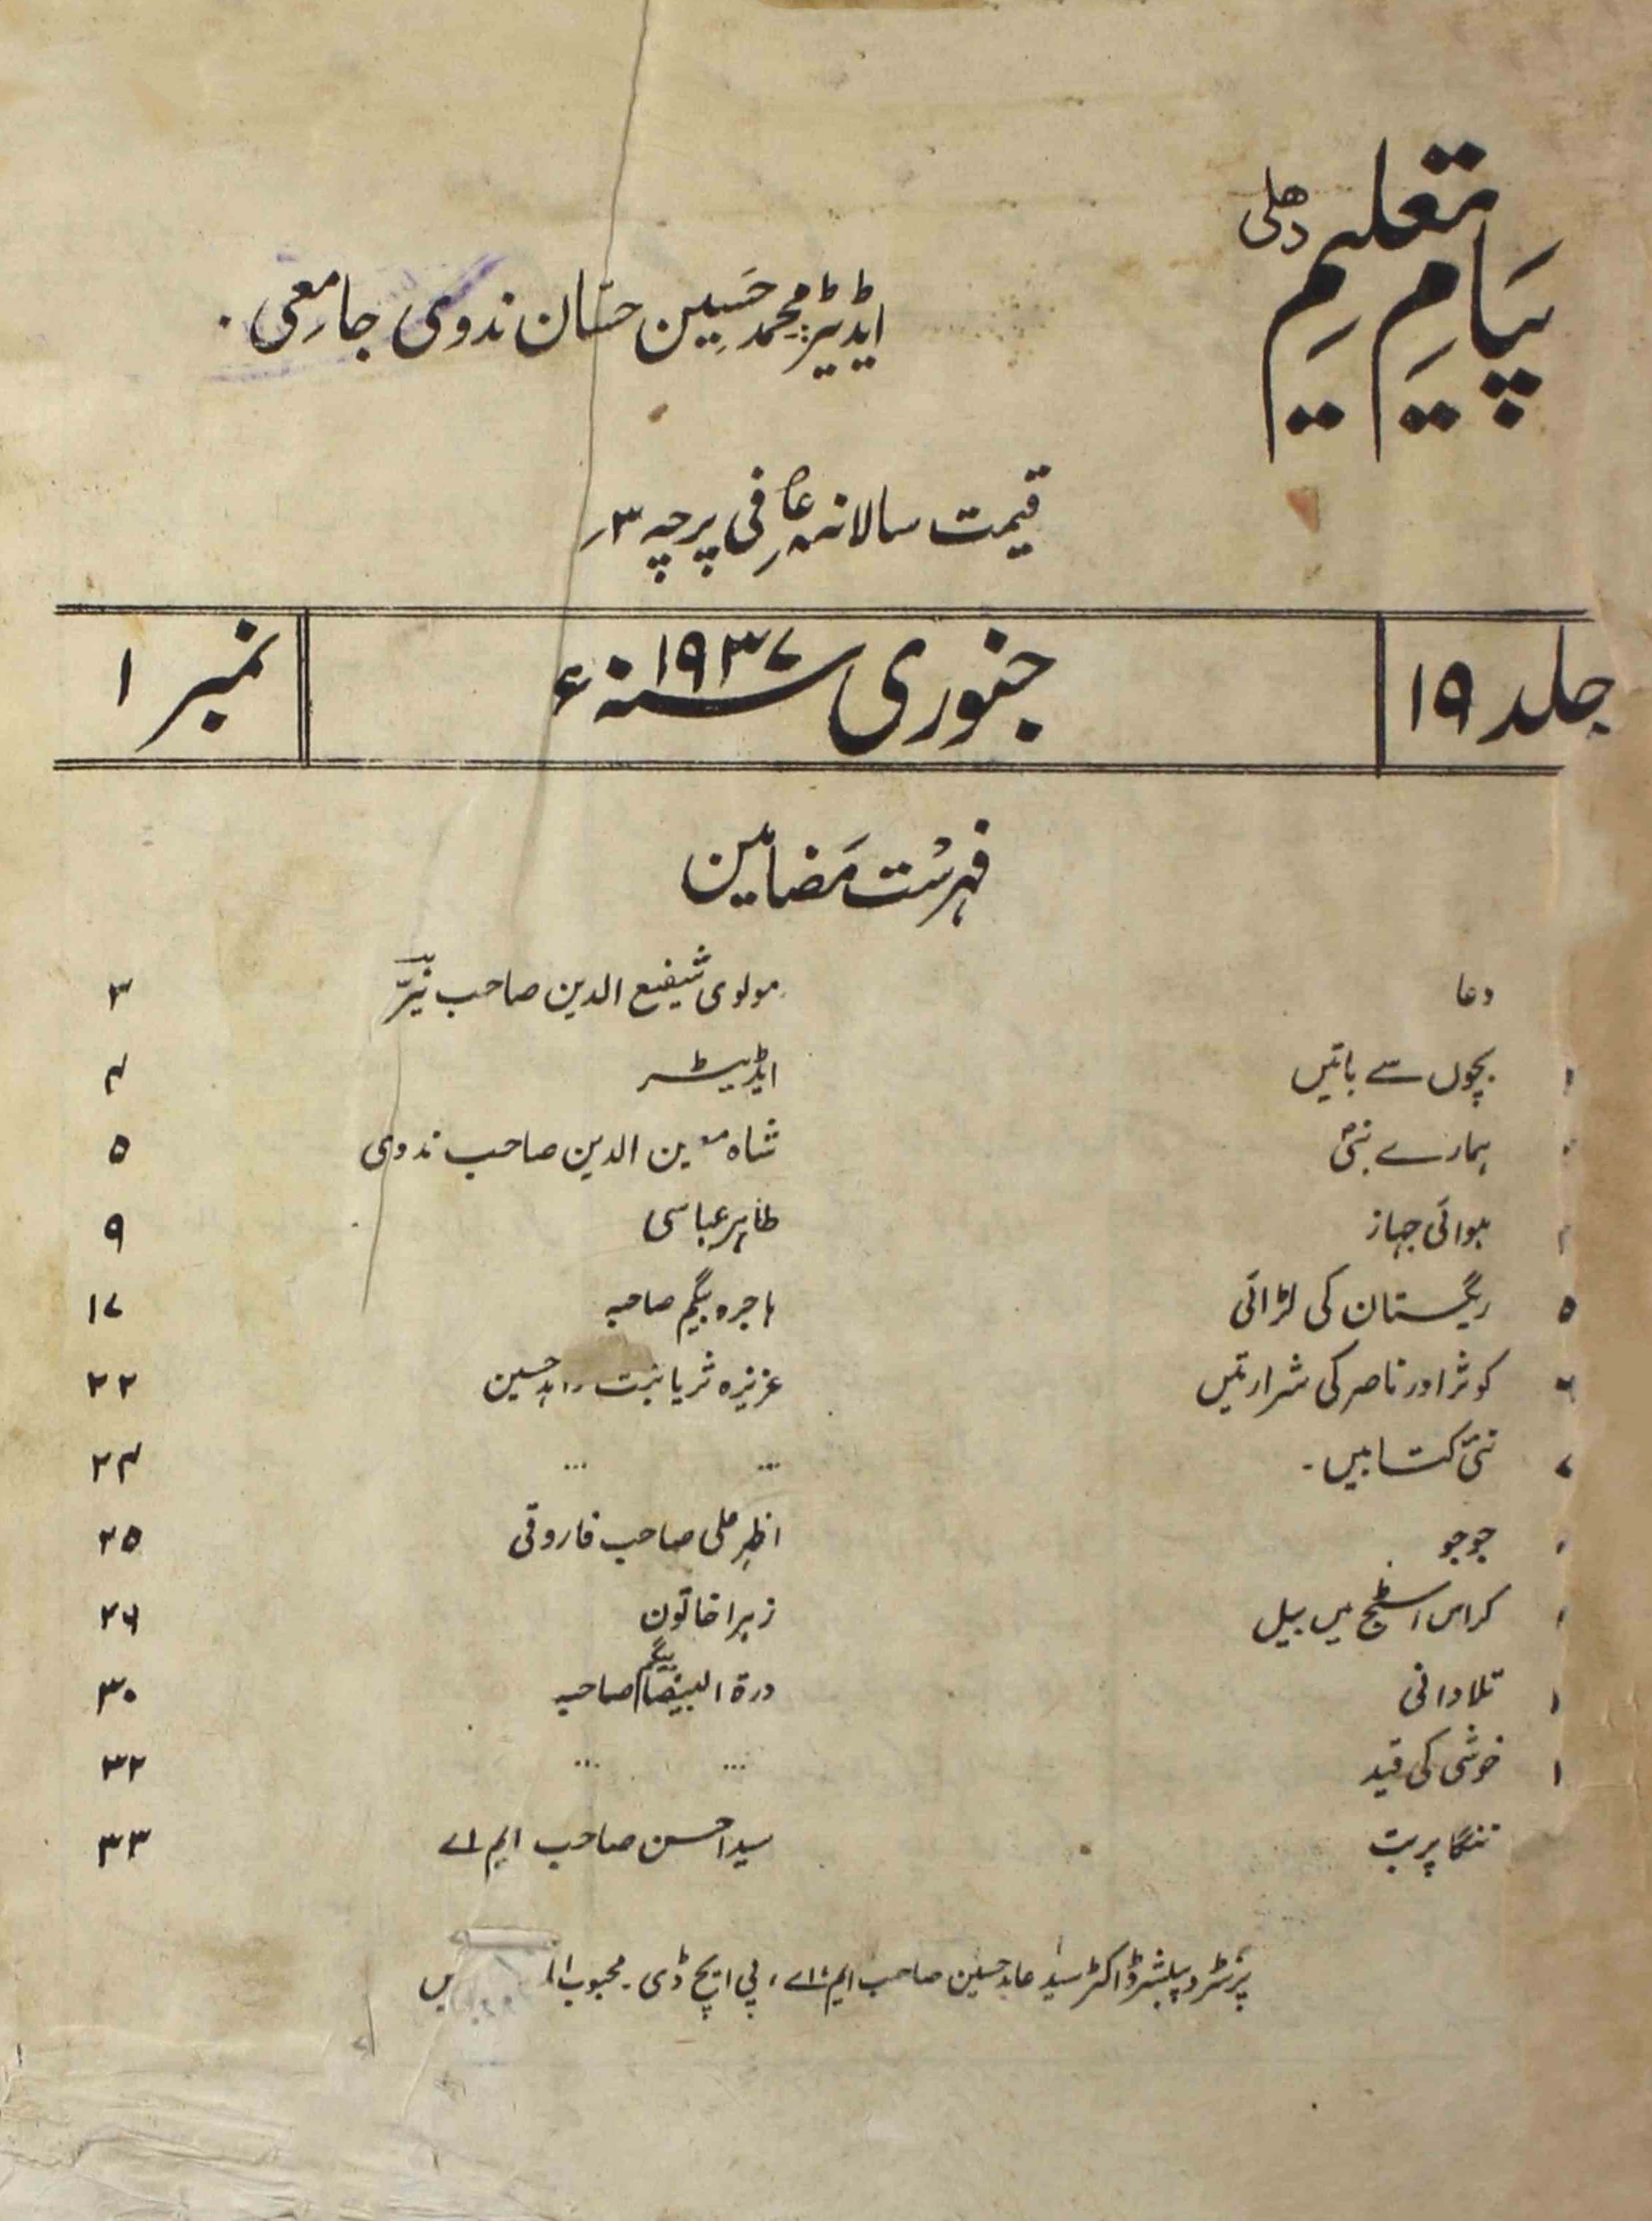 پیام تعلیم دھلی
ایڈیٹر: محمد حسین حسّان ندوی جامعی
قیمت سالانہ فی پرچہ ۳؍
جلد ۱۹ جنوری سنہ ۱۹۳۷ء نمبر ۱
فہرست مضامین
دعا مولوی شفیع الدین صاحب نیّر ۳
بچوں سے باتیں ایڈیٹر ۴
ہمارے نبیؐ شاہ معین الدین صاحب ندوی ۵
ہوائی جہاز طاہر عباسی ۹
۵ ریگستان کی لڑائی ہاجرہ بیگم صاحبہ ۱۷
۶ کوثر اور ناصر کی شرارتیں عزیزہ ثریا بنت حسین ۲۲
۷ نئی کتابیں۔ ... ... ۲۴
جوجو اظہر علی صاحب فاروقی ۲۵
کراس اسٹیج میں بیل زہرا خاتون ۲۶
تلادانی درۃ البیضا بیگم صاحبہ ۳۰
۱ خوشی کی قید ... ... ۳۲
ننگا پربت سید احسن صاحب ایم اے ۳۳
پرنٹر و پبلشر ڈاکٹر سید عابد حسین صاحب ایم، اے، پی ایچ ڈی۔ محبوب